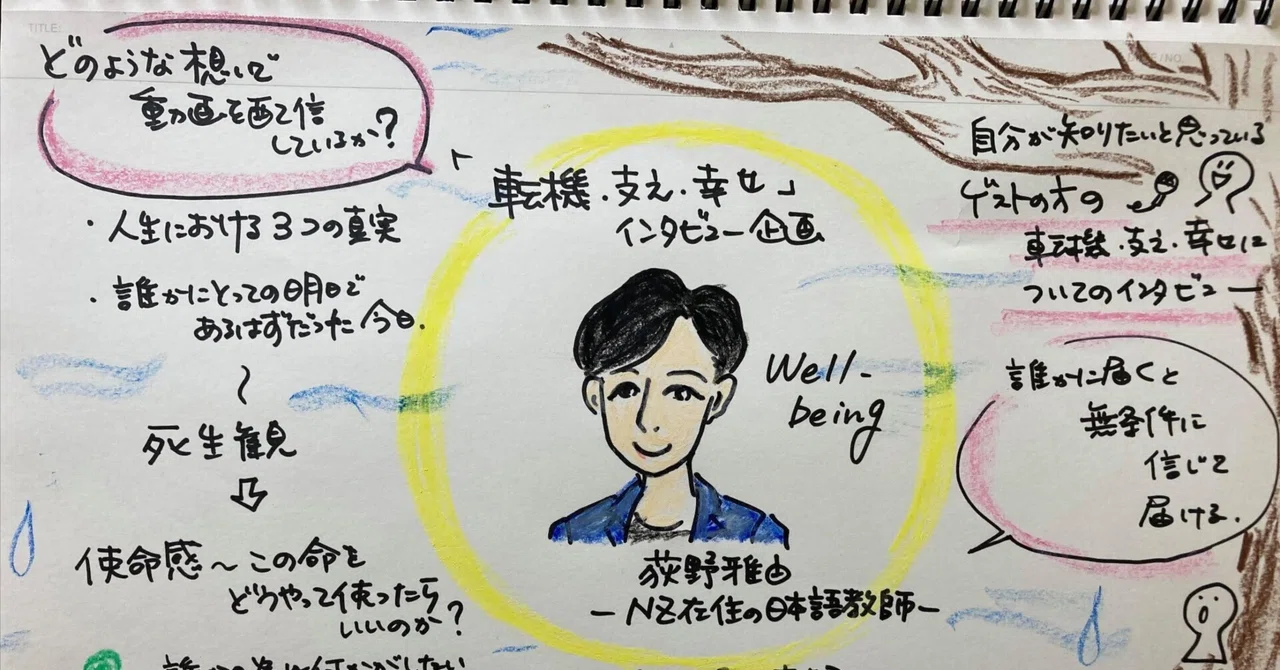 TITLE:
NO.
どのような想いで
動画を配信
しているか?
・人生における3つの真実
・誰かにとっての明日で
あるはずだった今日.
〜
死生観
使命感〜この命を
どうやって使ったら
いいのか?
「転機・支え・幸せ」
インタビュー企画
Well-
being
荻野雅由
ーNZ在住の日本語教師ー
自分が知りたいと思っている
ゲストの方の
転機・支え・幸せに
ついてのインタビュー
誰かに届くと
無条件に
信じて
届ける.